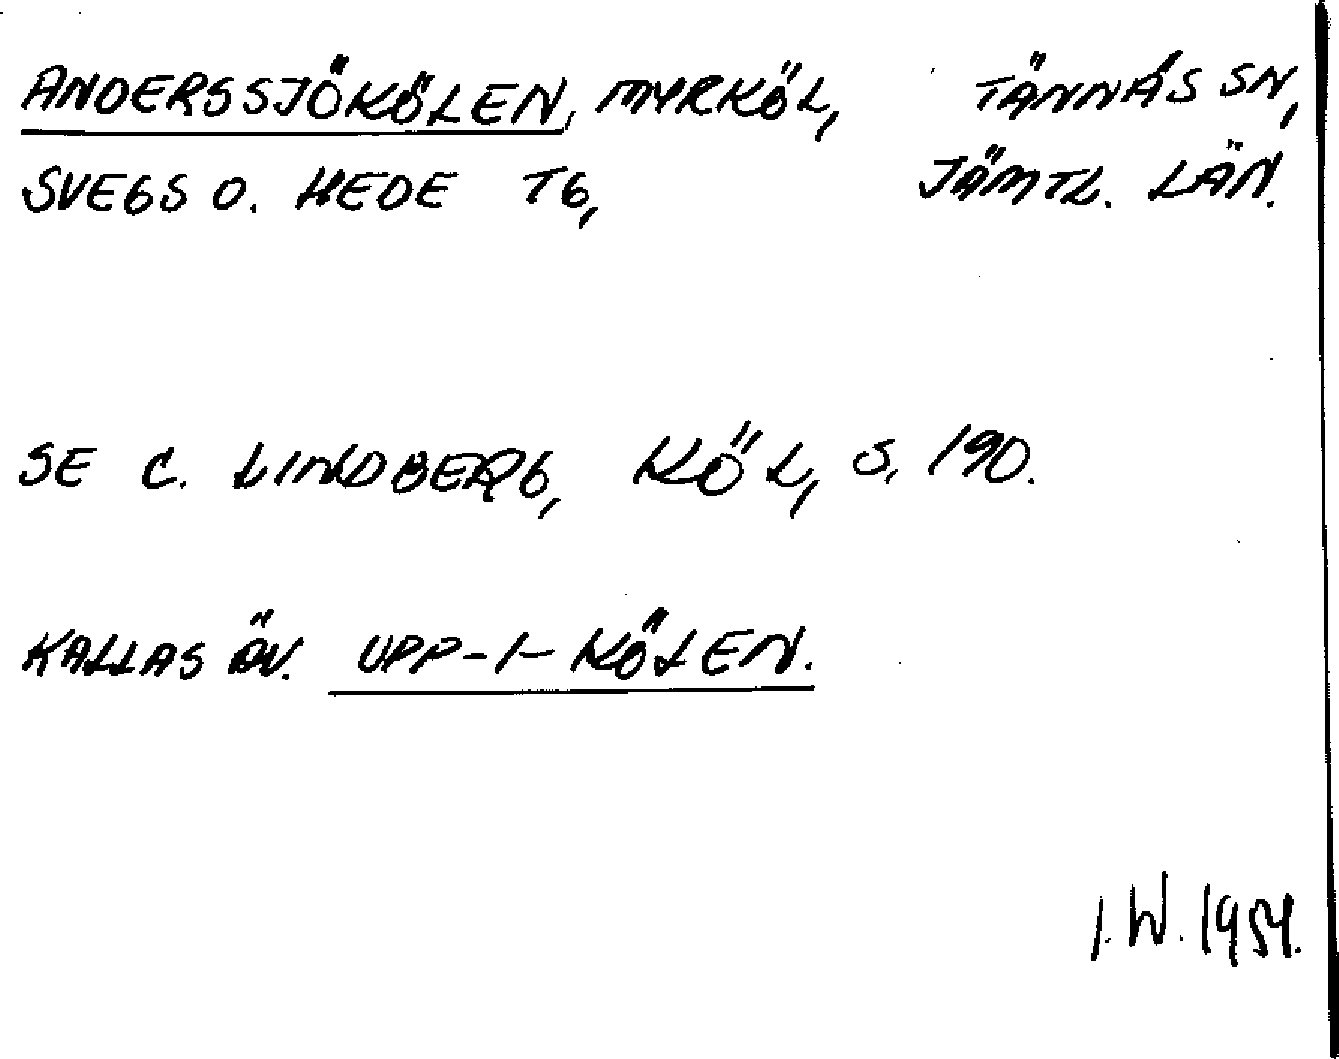 ANDERSSJÖKÖLEN, MYRKÖL, TÄNNÄS SN,
SVEGS O. HEDE TG, JÄMTL. LÄN.
SE C. LINDBERG, KÖL, S. 190.
KALLAS ÄV. UPP-I-KÖLEN.
I. W. 1954.